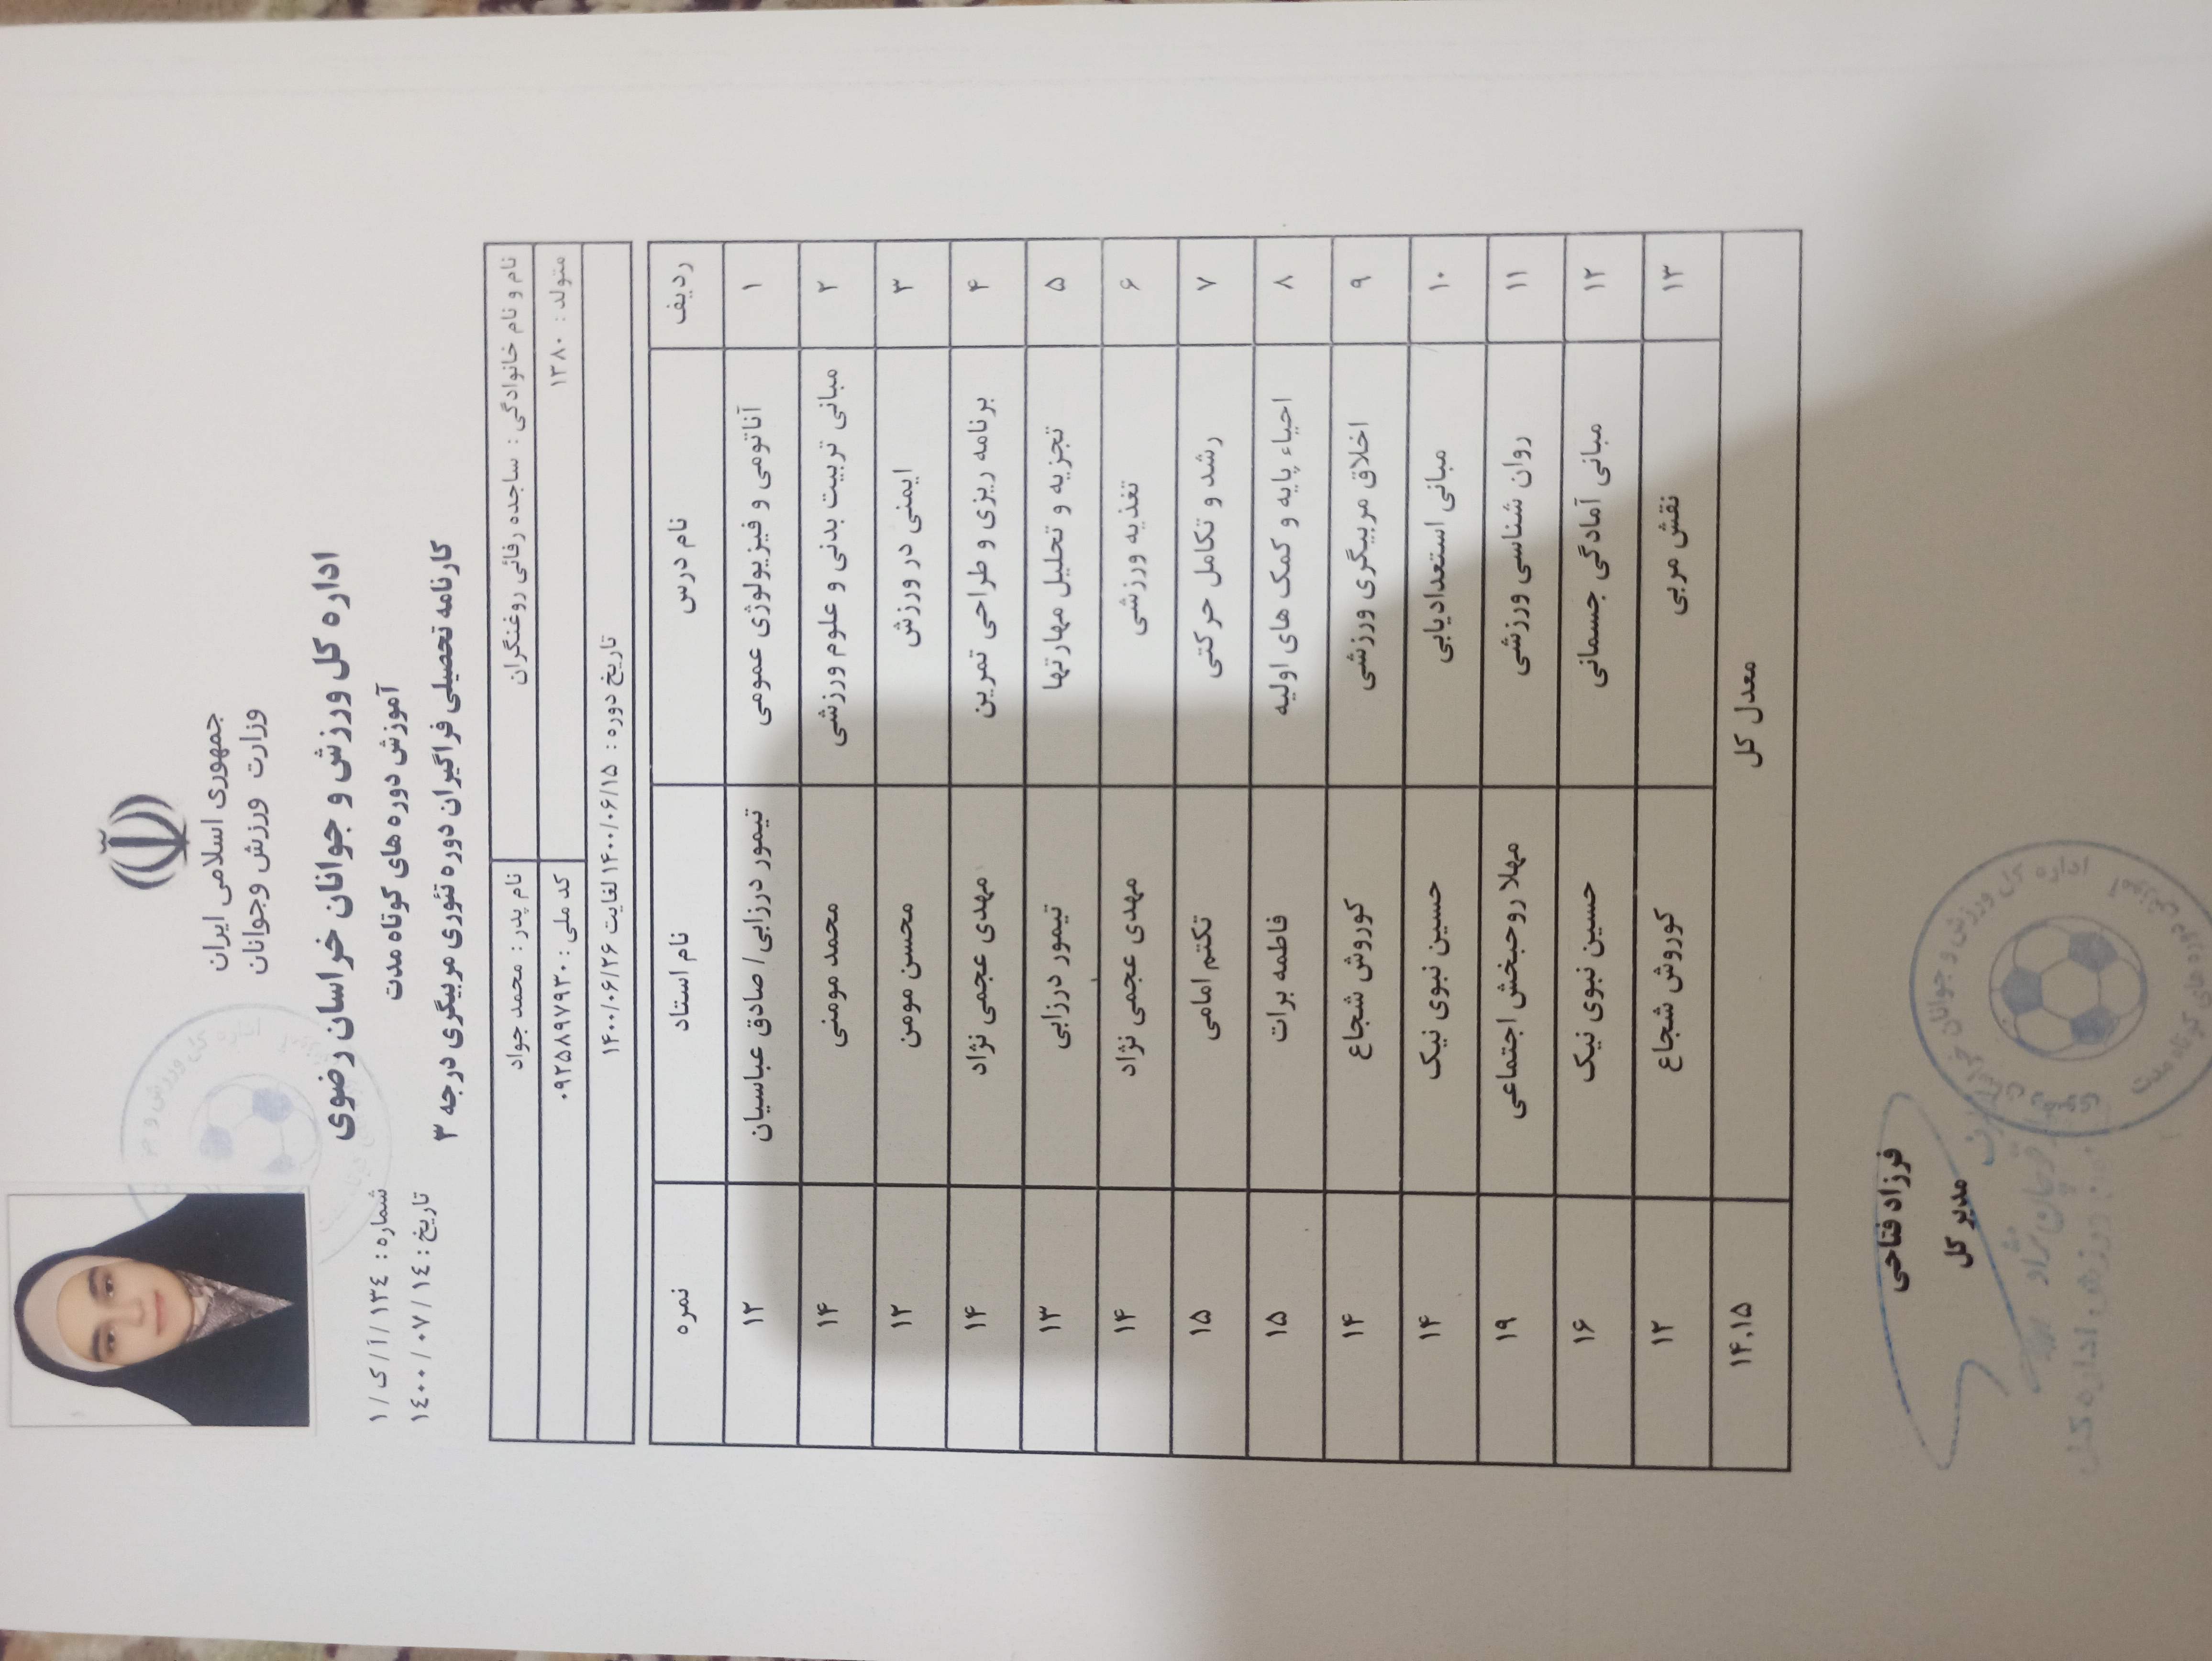 جمهوری اسلامی ایران
وزارت ورزش وجوانان
اداره کل ورزش و جوانان خراسان رضوی
آموزش دوره های کوتاه مدت
کارنامه تحصیلی فراگیران دوره تئوری مربیگری درجه ۳
شماره : ۱۳٤/ آ / ک / ۱
تاریخ : ۱٤ / ۰۷ / ۱٤۰۰
نام و نام خانوادگی : ساجده رفائی روغنگران نام پدر : محمد جواد
متولد : ۱۳۸۰ کد ملی : ۰۹۲۵۸۹۷۹۳۰
تاریخ دوره : ۱۴۰۰/۰۶/۱۵ لغایت ۱۴۰۰/۰۶/۲۶
ردیف نام درس نام استاد نمره
۱ آناتومی و فیزیولوژی عمومی تیمور درزابی / صادق عباسیان ۱۲
۲ مبانی تربیت بدنی و علوم ورزشی محمد مومنی ۱۴
۳ ایمنی در ورزش محسن مومن ۱۲
۴ برنامه ریزی و طراحی تمرین مهدی عجمی نژاد ۱۴
۵ تجزیه و تحلیل مهارتها تیمور درزابی ۱۳
۶ تغذیه ورزشی مهدی عجمی نژاد ۱۴
۷ رشد و تکامل حرکتی تکتم امامی ۱۵
۸ احیاء پایه و کمک های اولیه فاطمه برات ۱۵
۹ اخلاق مربیگری ورزشی کوروش شجاع ۱۴
۱۰ مبانی استعدادیابی حسین نبوی نیک ۱۴
۱۱ روان شناسی ورزشی مهلا روحبخش اجتماعی ۱۹
۱۲ مبانی آمادگی جسمانی حسین نبوی نیک ۱۶
۱۳ نقش مربی کوروش شجاع ۱۲
معدل کل ۱۴.۱۵
فرزاد فتاحی
مدیر کل
اداره کل ورزش و جوانان خراسان رضوی
آموزش دوره های کوتاه مدت